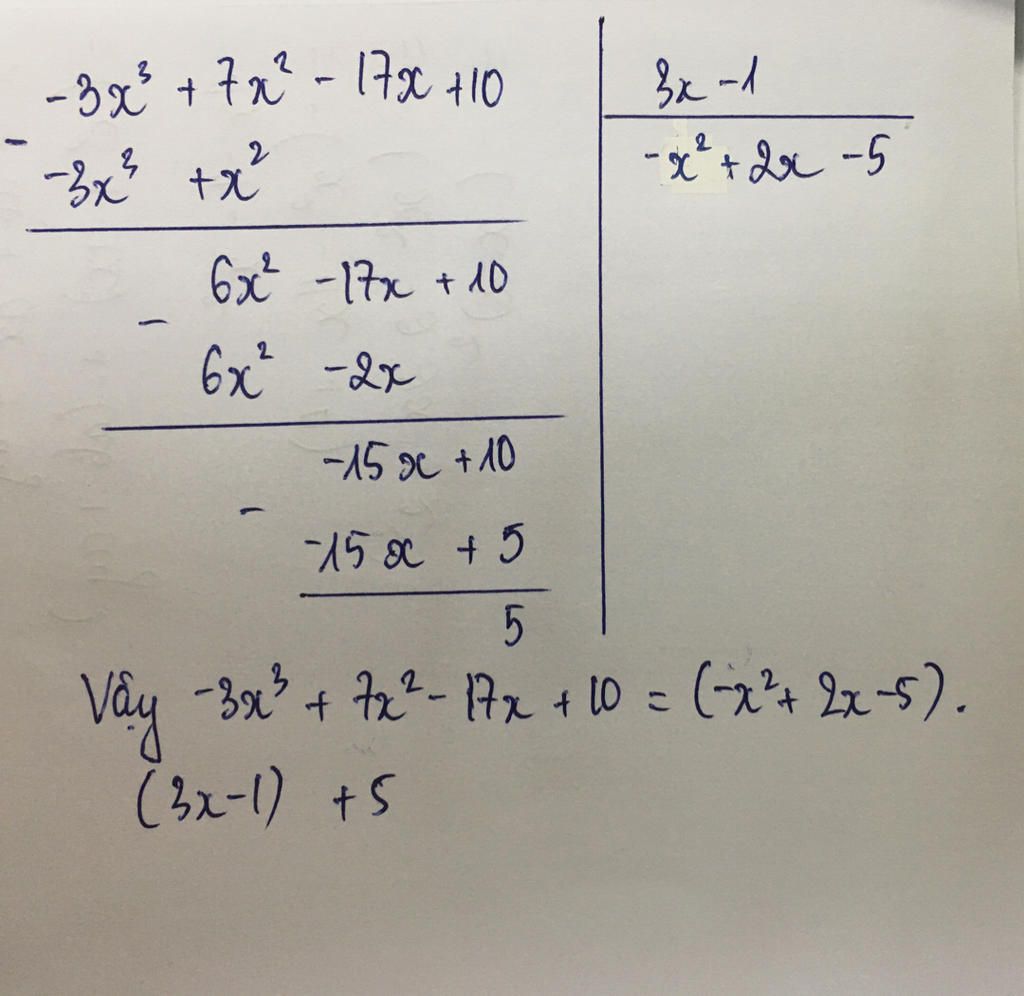 -3x³ + 7x² - 17x + 10 | 3x - 1
-
-3x³ + x² | -x² + 2x - 5
6x² - 17x + 10
-
6x² - 2x
-15x + 10
-
-15x + 5
5
Vậy -3x³ + 7x² - 17x + 10 = (-x² + 2x - 5).
(3x - 1) + 5